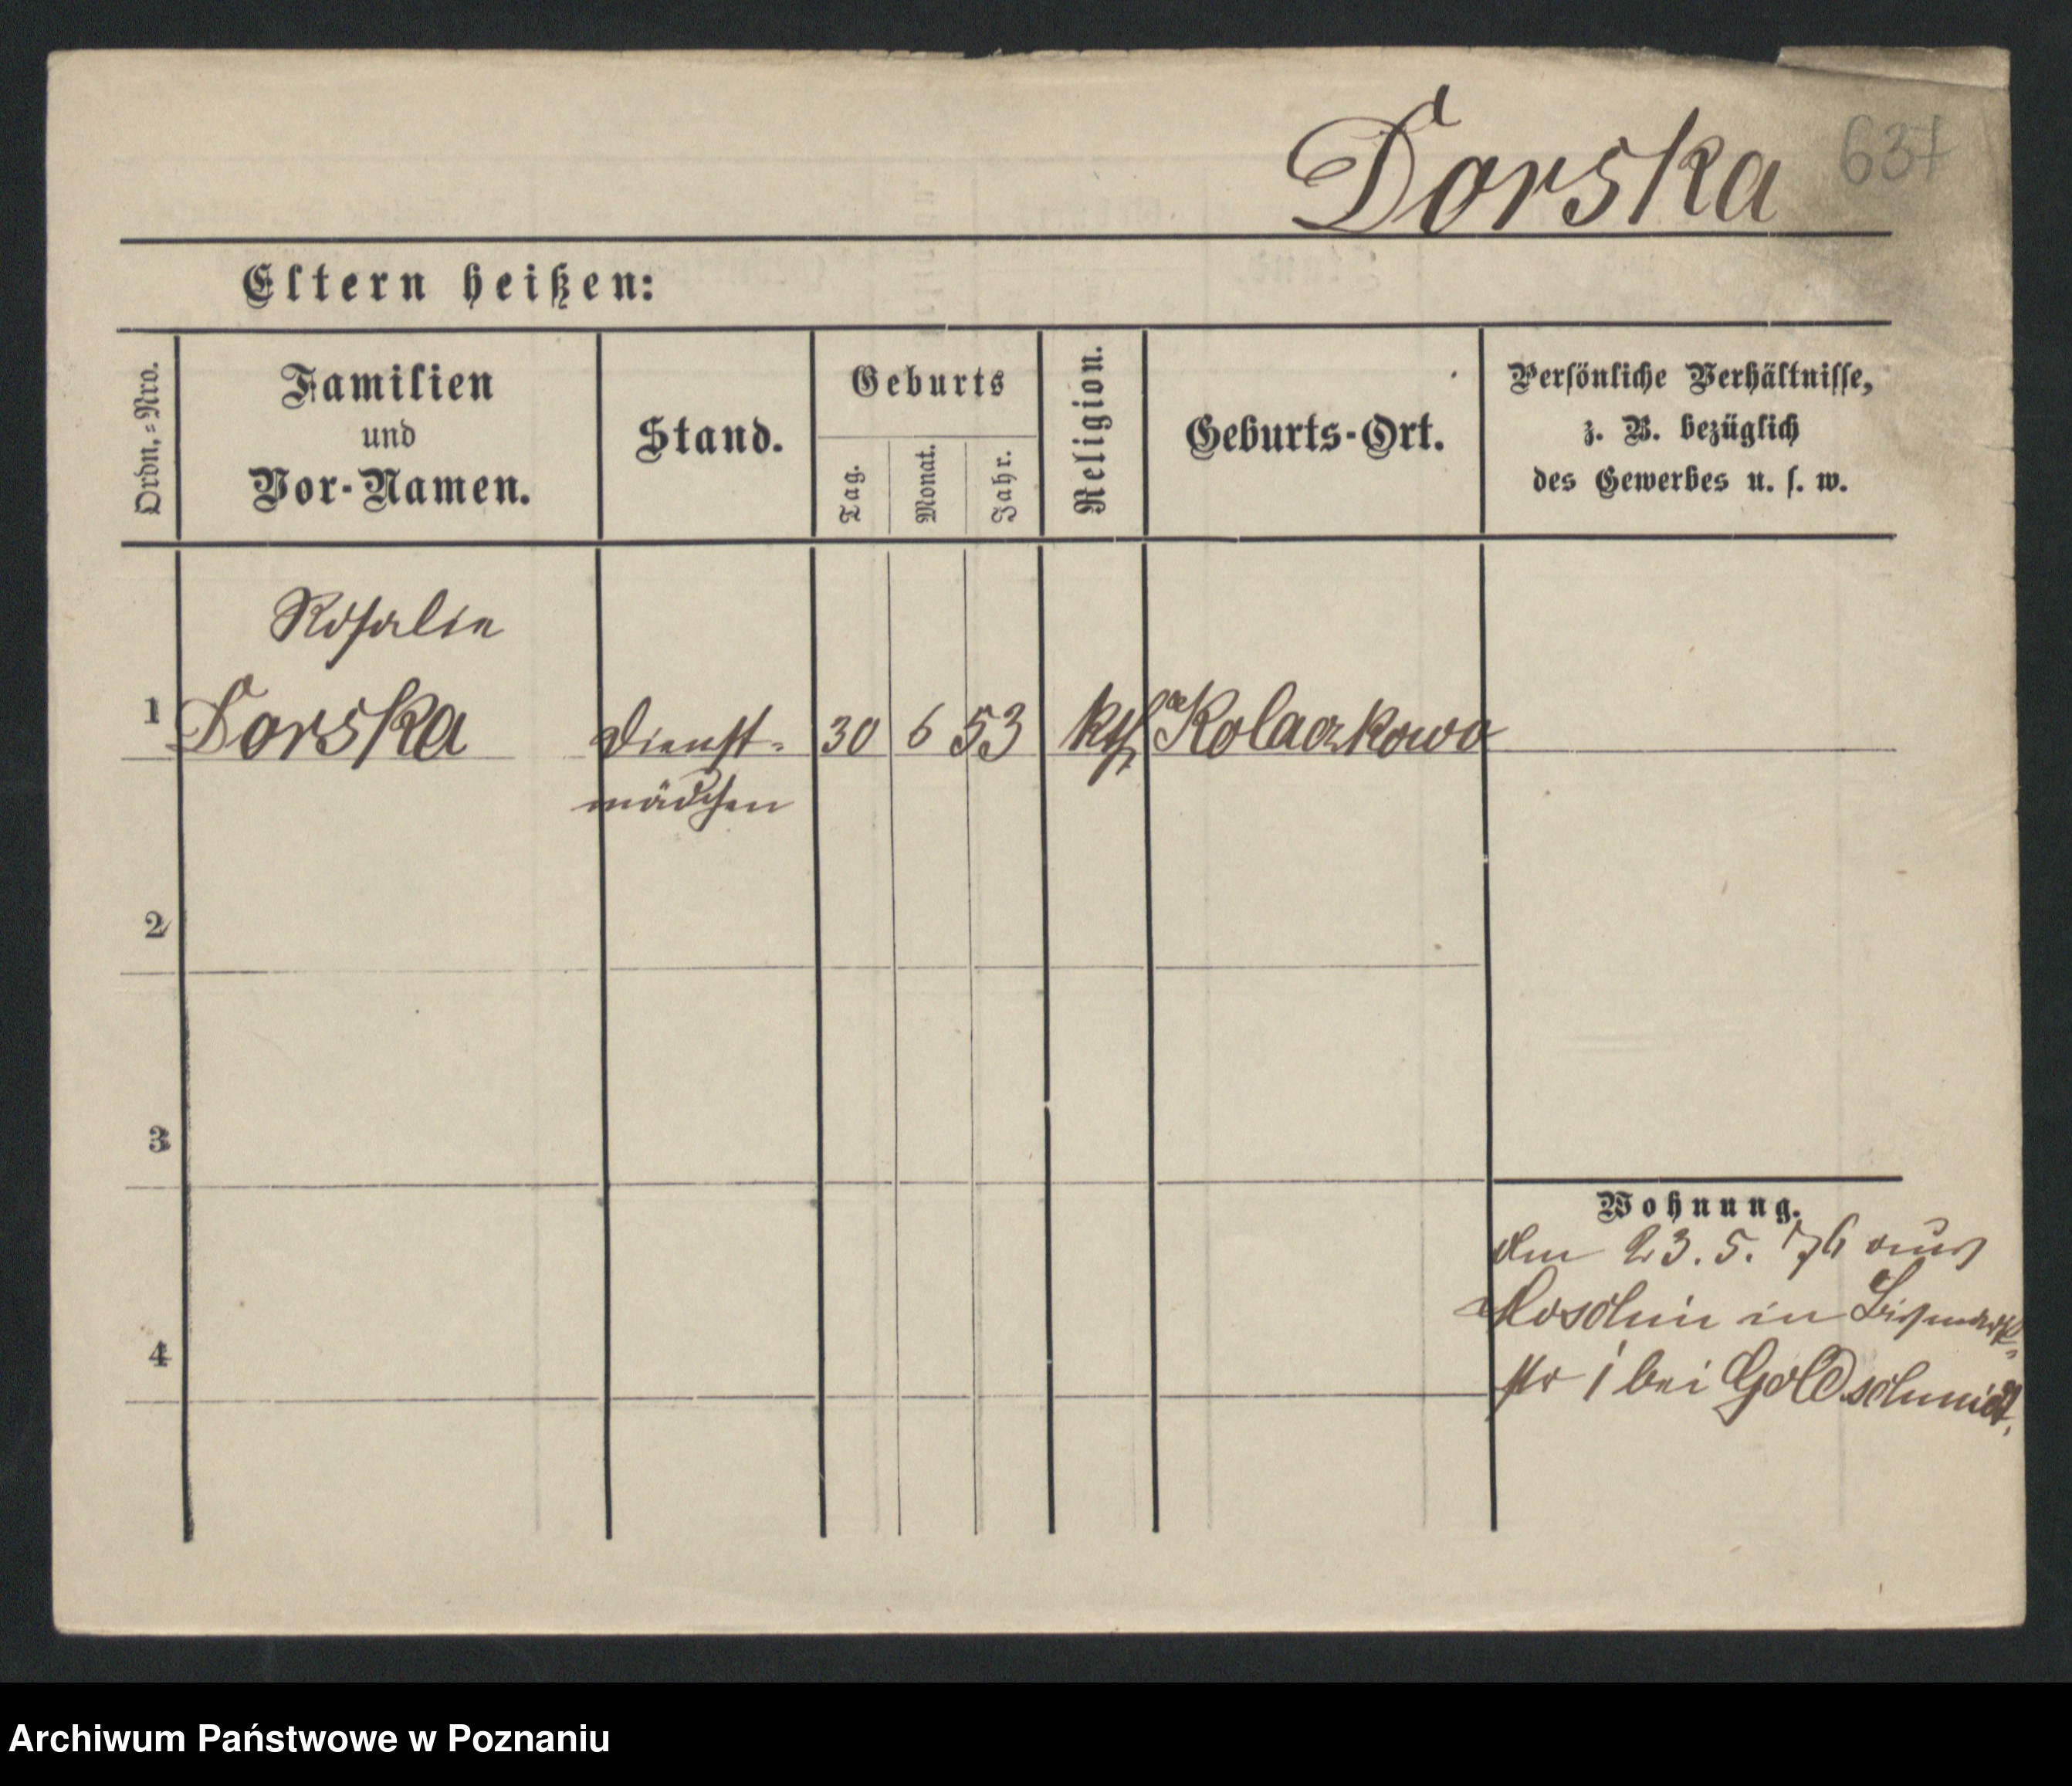 Dorska 637
Eltern heißen:
Ordn.-Nro.
Familien
und
Vor-Namen.
Stand.
Geburts
Tag.
Monat.
Jahr.
Religion.
Geburts-Ort.
Persönliche Verhältnisse,
z. B. bezüglich
des Gewerbes u. s. w.
Rosalie
1 Dorska Dienst- 30 6 53 kth Kolaczkowo
mädchen
2
3
Wohnung.
den 23. 5. 76 aus
in Bismark-
4
str 1 bei Goldschmidt.
Archiwum Państwowe w Poznaniu